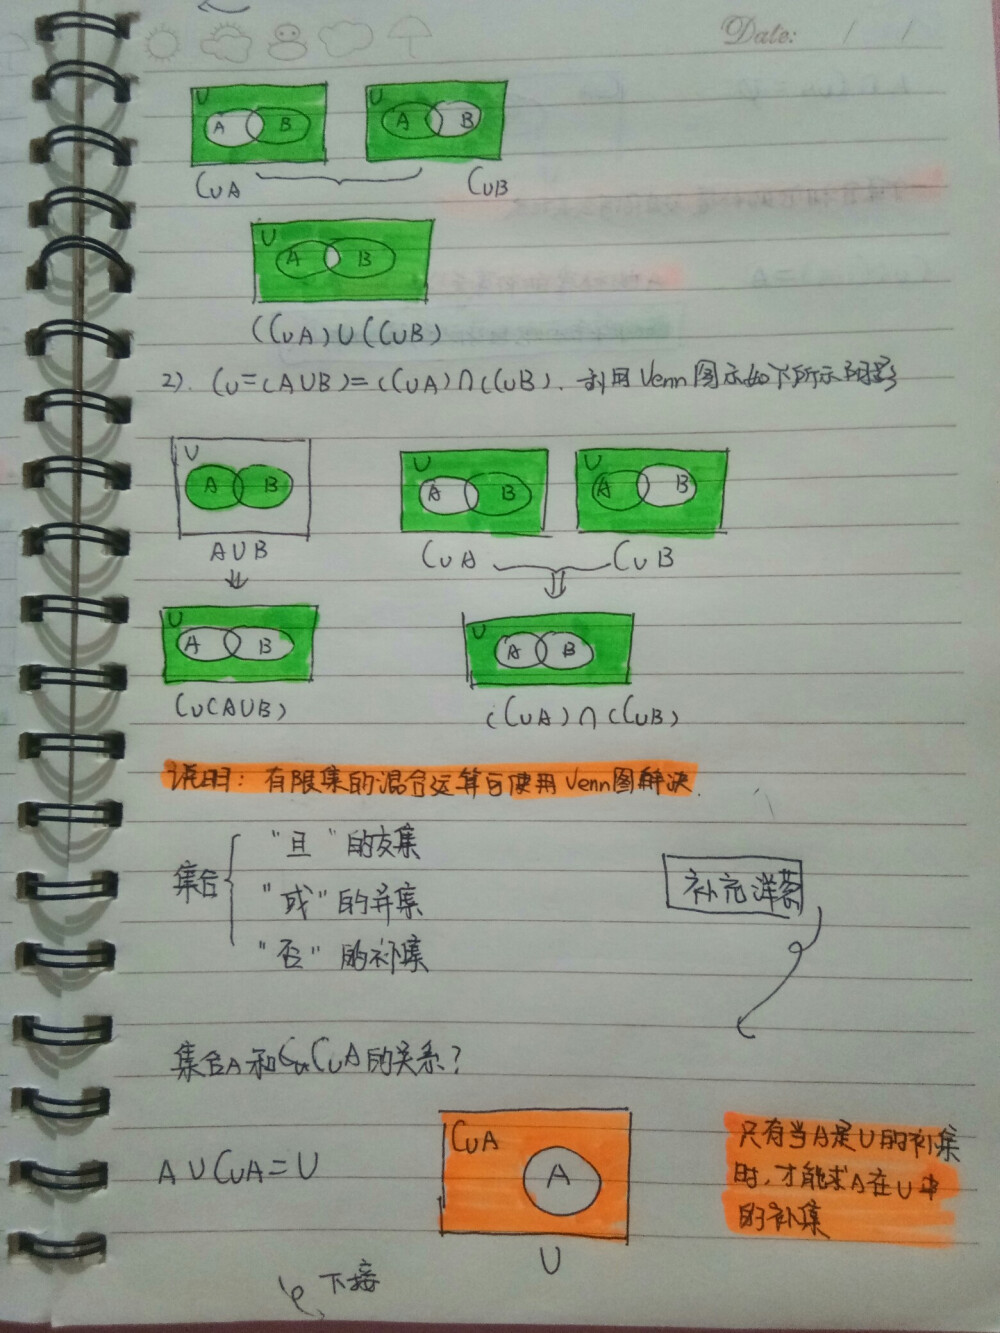 Date: / /
U A B U A B
CuA CuB
U A B
(CuA)∪(CuB)
2). Cu=(A∪B)=(CuA)∩(CuB). 利用Venn图示如下所示阴影
U A B U A B U A B
A∪B CuA CuB
U A B U A B
Cu(A∪B) (CuA)∩(CuB)
说明: 有限集的混合运算可使用Venn图解决.
集合
"且"的交集
"或"的并集
"否"的补集
补充洋葱
集合A和CuCuA的关系?
A∪CuA=U
CuA A
U
只有当A是U的补集
时,才能求A在U中
的补集
下接